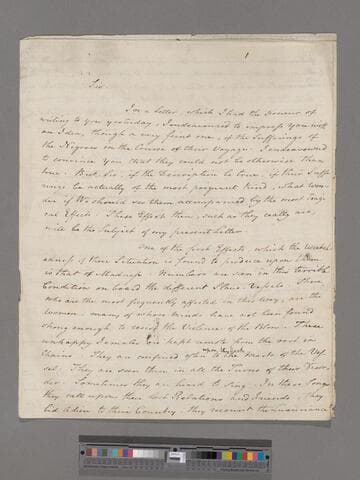 1
Sir
In a Letter, which I had the Honour of
writing to you yesterday, I endeavoured to impress you with
an Idea, though a very faint one, of the Sufferings of
the Negroes in the Course of their Voyage. I endeavoured
to convince you that they could not be otherwise than
true. But, Sir, if the Description be true, if their Suffe
rings be actually of the most poignant Kind, what won
der if We should see them accompanied by the most singu
lar Effects. These Effects then, such as they really are,
will be the Subject of my present Letter.
One of the first Effects, which the wretch
edness of their Situation is found to produce upon them
is that of Madness. Numbers are seen in this terrible
Condition on board the different Slave Vessels. Those
who are the most frequently affected in this way, are the
Women, many of whose Minds have not been found
strong enough to resist the Violence of the Blow. These
unhappy Females are kept remote from the rest in
Chains. They are confined often to the Masts of the Ves
upon Deck
sel. They are seen there in all the Terrors of their Disor
der. Sometimes they are heard to sing. In their Songs
they call upon their lost Relations and Friends. They
bid Adieu to their Country. They recount the